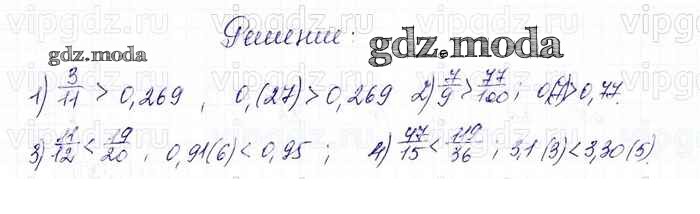 vipgdz.ru vipgdz.ru vipgdz.ru vipgdz.ru
Решение:
gdz.moda gdz.moda
1) 3/11 > 0,269 , 0,(27) > 0,269 2) 7/9 > 77/100 ; 0,(7) > 0,77.
3) 11/12 < 19/20 , 0,91(6) < 0,95 ; 4) 47/15 < 119/36 ; 3,1(3) < 3,30(5).